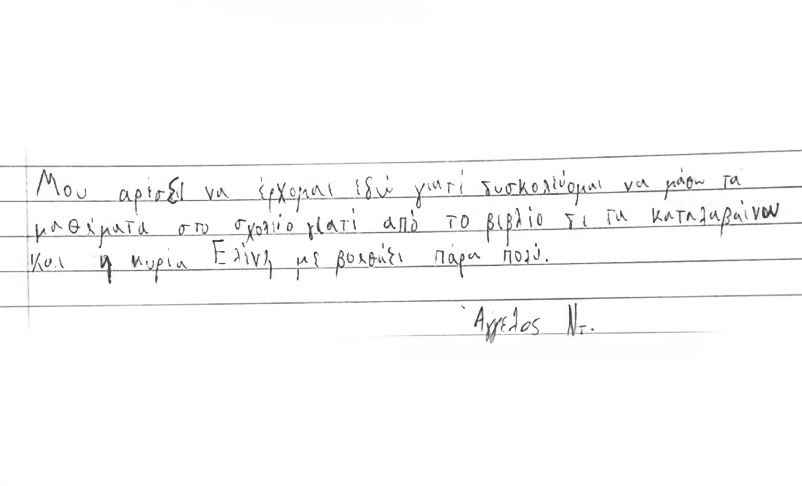 Μου αρέσει να έρχομαι εδώ γιατί δυσκολεύομαι να μάθω τα
μαθήματα στο σχολείο γιατί από το βιβλίο δε τα καταλαβαίνου
και η κυρία Ελένη με βοηθάει πάρα πολύ.
Άγγελος Ντ.